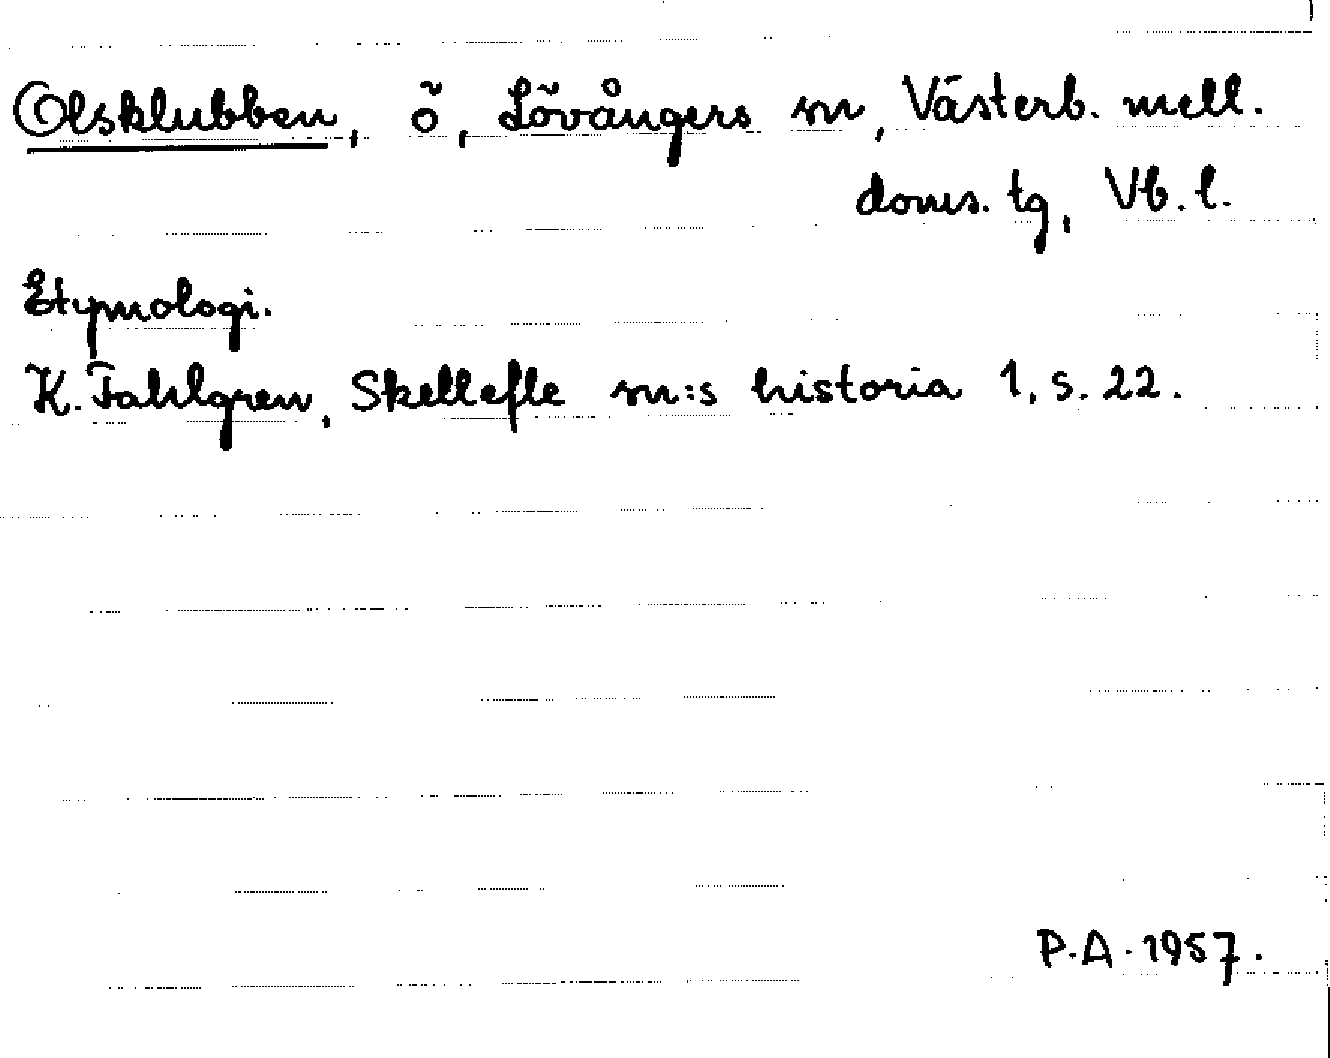 Olsklubben, ö, Lövångers sn, Västerb. mell.
doms. tg, Vb. l.
Etymologi.
K. Fahlgren, Skellefte sn:s historia 1, s. 22.
P.A. 1957.